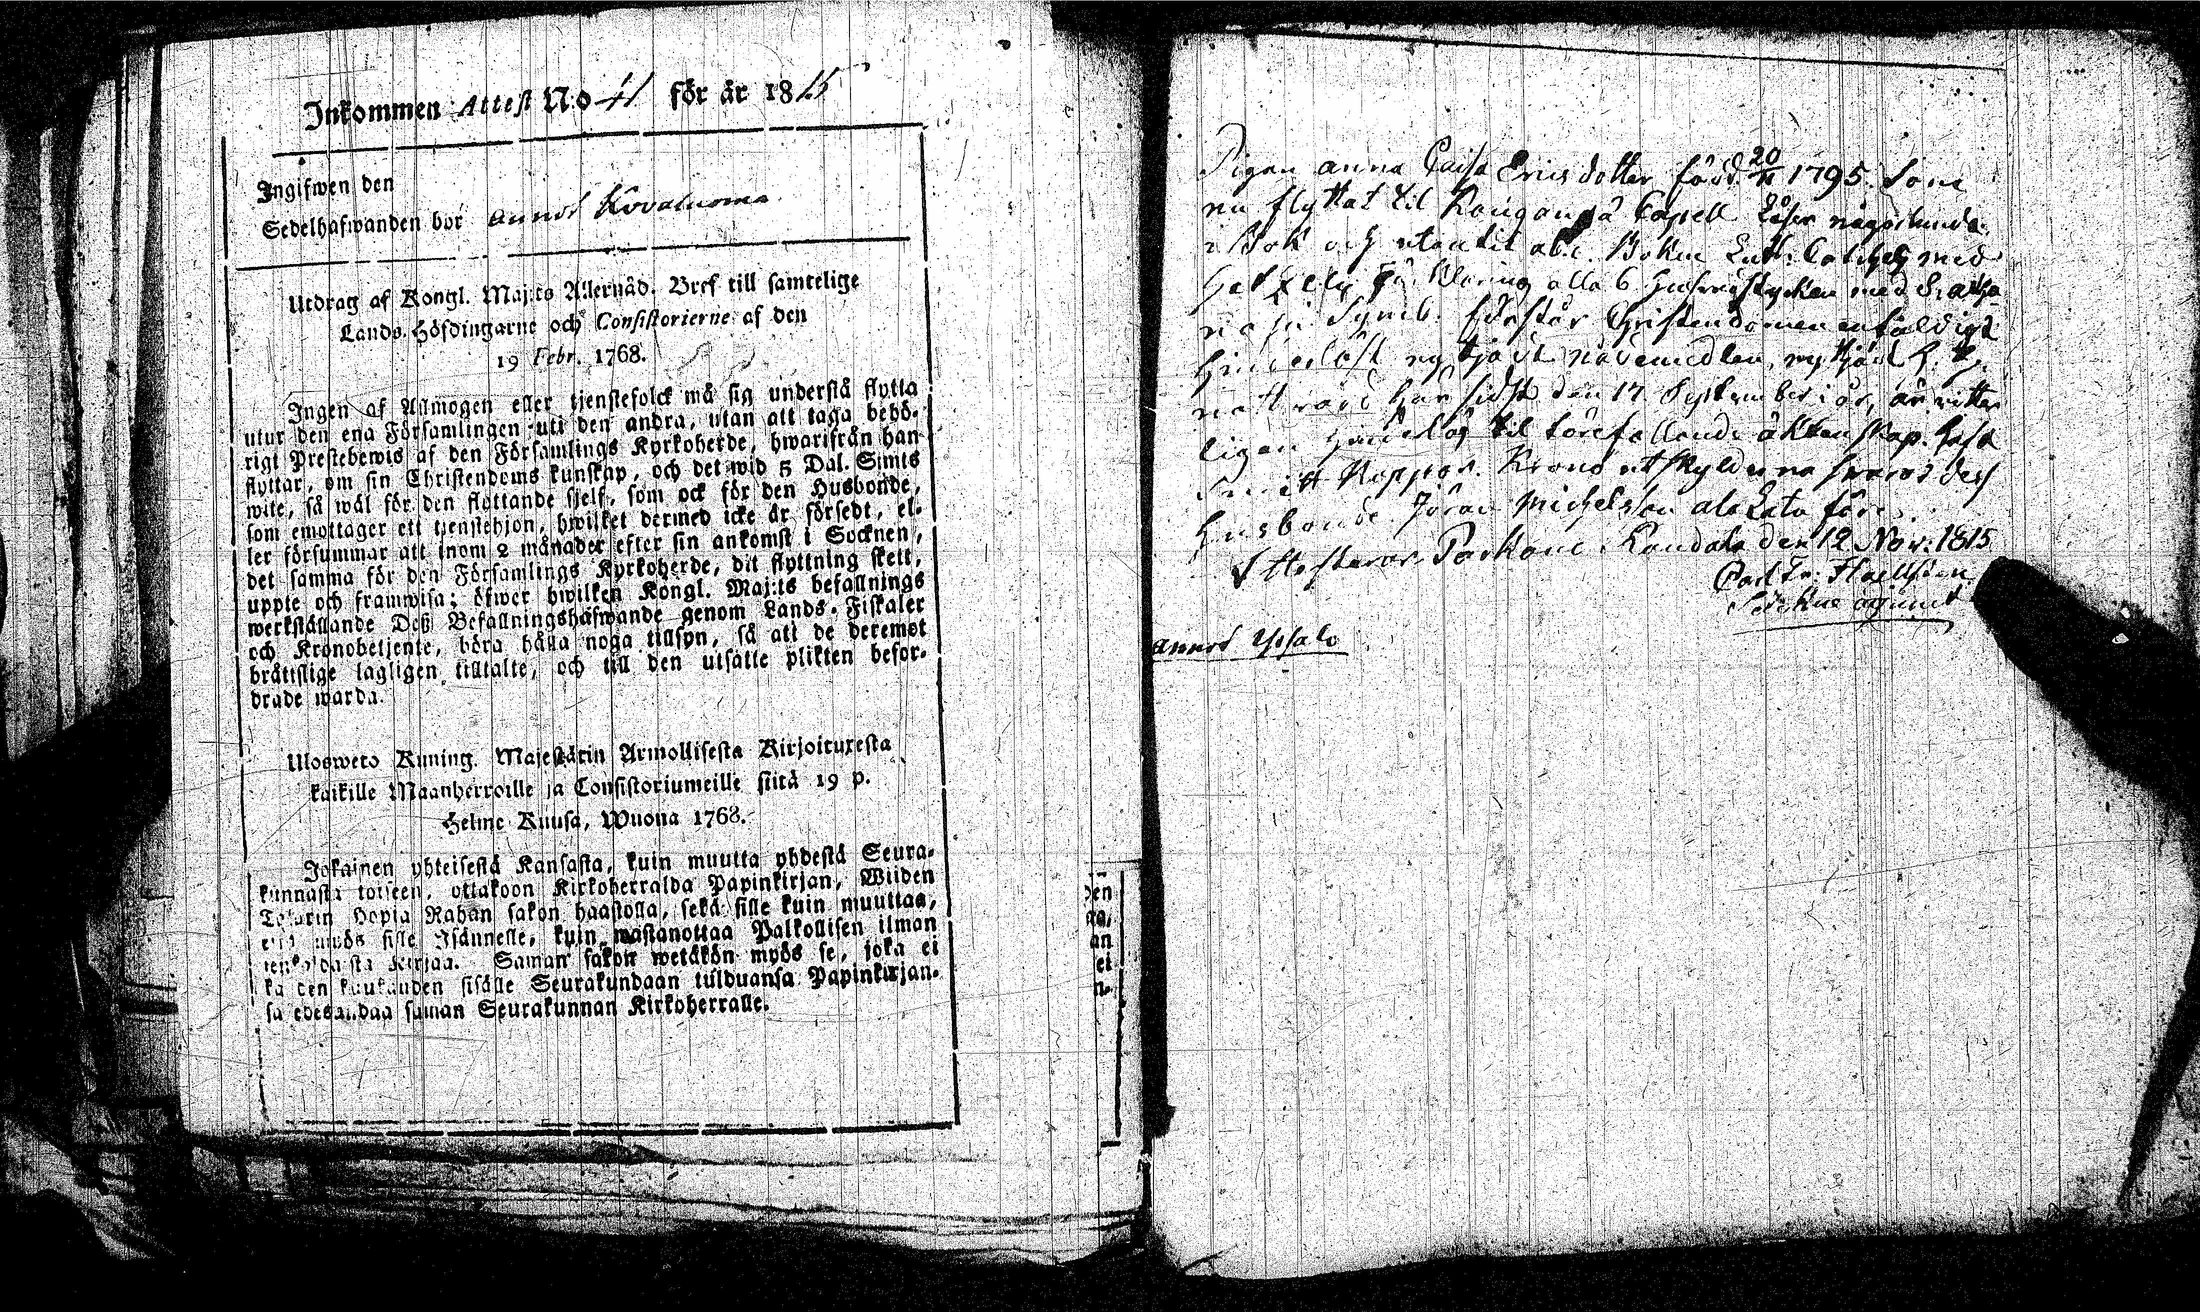 Inkommen Attest No 41 för år 1815
Ingifwen den
Sedelhafwanden bor annos Kovaluoma
Utdrag af Kongl. Maj:ts Allernåd. Bref till samtelige
Lands-Höfdingarne och Consistorierne af den
19 Febr. 1768.
Ingen af Allmogen eller tjenstefolck må sig understå flytta
utur den ena Församlingen uti den andra, utan att taga behö-
rigt Prestebewis af den Församlings Kyrkoherde, hwarifrån han
flyttar, om sin Christendoms kunskap, och det wid 5 Dal. Smts
wite, så wäl för den flyttande sjelf, som ock för den Husbonde,
som emottager ett tjenstehjon, hwilket dermed icke är försedt, el-
ler försummar att inom 2 månader efter sin ankomst i Socknen,
det samma för den Församlings Kyrkoherde, dit flyttning skett,
uppte och framwisa; öfwer hwilken Kongl. Maj:ts befallnings
werkställande Deß Befallningshafwande genom Lands-Fiskaler
och Kronobetjente, böra hålla noga tillsyn, så att de deremot
bråttslige lagligen tilltalte, och till den utsatte plikten befor-
drade warda.
Ulosweto Kuning. Majestätin Armollisesta Kirjoituxesta
kaikille Maanherroille ja Consistoriumeille siitä 19 p.
Helme Kuusa, Wuona 1768.
Jokainen yhteisestä Kansasta, kuin muutta yhdestä Seura-
kunnasta toiseen, ottakoon Kirkoherralda Papinkirjan, Wiiden
Talarin Hopia Rahan sakon haastolla, sekä sille kuin muuttaa,
että myös sille Isännelle, kuin wastanottaa Palkollisen ilman
Kirjaa. Saman sakon wetäkön myös se, joka ei
ka den kuukauden sisälle Seurakundaan tulduansa Papinkirjan-
sa edesandaa saman Seurakunnan Kirkoherralle.
den
ta,
an
ei
n-
Pigan anna Caisa Ericsdotter född 20/11 1795. Som
nu flyttat til Kauganpä Capell Läser någorlunda
i Bok och utantil abc. Boken Luth. Catches med
förklaring alla 6 hufvudstycken med Atha
nasii Symb. förstår Christendomen enfaldigt
Hinderlöst nyttjadt nådemedlen, nyttjade H. H.
nattvard här sidst den 17 September i år, är
ligen til förefallande äktenskap. haft
Koppor. Krono utskylderna svarar des
husbonde Jöran Michelsson ala Lato före.
Attesterar Parkano Kandala den 12 Nov. 1815
Carl Fr.
annos Yssalo